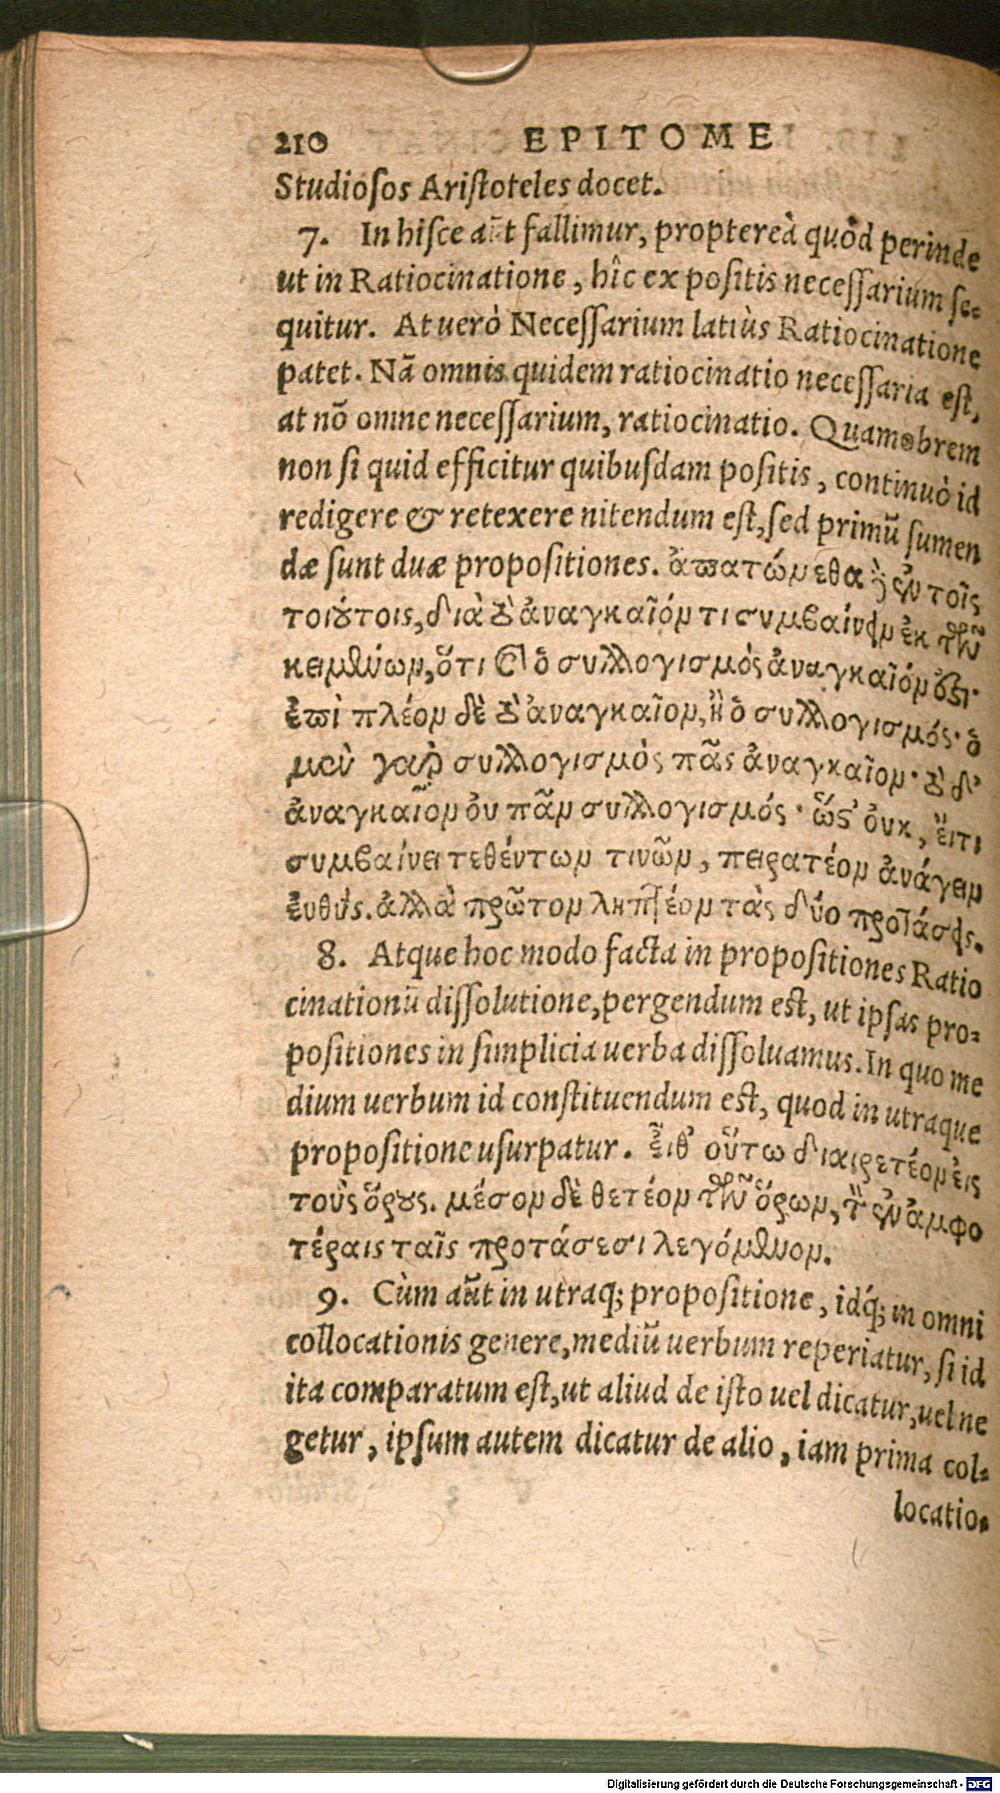 210 EPITOME
Studiosos Aristoteles docet.
7. In hisce aūt fallimur, propterea̍ quòd perinde
ut in Ratiocinatione, hîc ex positis necessarium se-
quitur. At uerò Necessarium latiùs Ratiocinatione
patet. Nā omnis quidem ratiocinatio necessaria est,
at nō omne necessarium, ratiocinatio. Quamobrem
non si quid efficitur quibusdam positis, continuò id
redigere & retexere nitendum est, sed primū sumen
dæ sunt duæ propositiones. ἀπατώμεθα δ' ἐν τοῖς
τοιούτοις, διὰ τὸ ἀναγκαῖόν τι συμβαίνειν ἐκ τῶν
κειμένων, ὅτι καὶ ὁ συλλογισμὸς ἀναγκαῖόν ἐστι.
ἐπὶ πλέον δὲ τὸ ἀναγκαῖον, ἢ ὁ συλλογισμός· ὁ
μὲν γὰρ συλλογισμὸς πᾶς ἀναγκαῖον· τὸ δ'
ἀναγκαῖον οὐ πᾶν συλλογισμός· ὥστ' οὐκ, εἴ τι
συμβαίνει τεθέντων τινῶν, πειρατέον ἀνάγειν
εὐθύς. ἀλλὰ πρῶτον ληπτέον τὰς δύο προτάσεις.
8. Atque hoc modo facta in propositiones Ratio
cinationū dissolutione, pergendum est, ut ipsas pro-
positiones in simplicia uerba dissoluamus. In quo me
dium uerbum id constituendum est, quod in utraque
propositione usurpatur. εἶθ' οὕτω διαιρετέον εἰς
τοὺς ὅρους. μέσον δὲ θετέον τῶν ὅρων, τὸ ἐν ἀμφο
τέραις ταῖς προτάσεσι λεγόμενον.
9. Cùm aūt in utraq; propositione, idq́; in omni
collocationis genere, mediū uerbum reperiatur, si id
ita comparatum est, ut aliud de isto uel dicatur, uel ne
getur, ipsum autem dicatur de alio, iam prima col-
locatio-
Digitalisierung gefördert durch die Deutsche Forschungsgemeinschaft - DFG